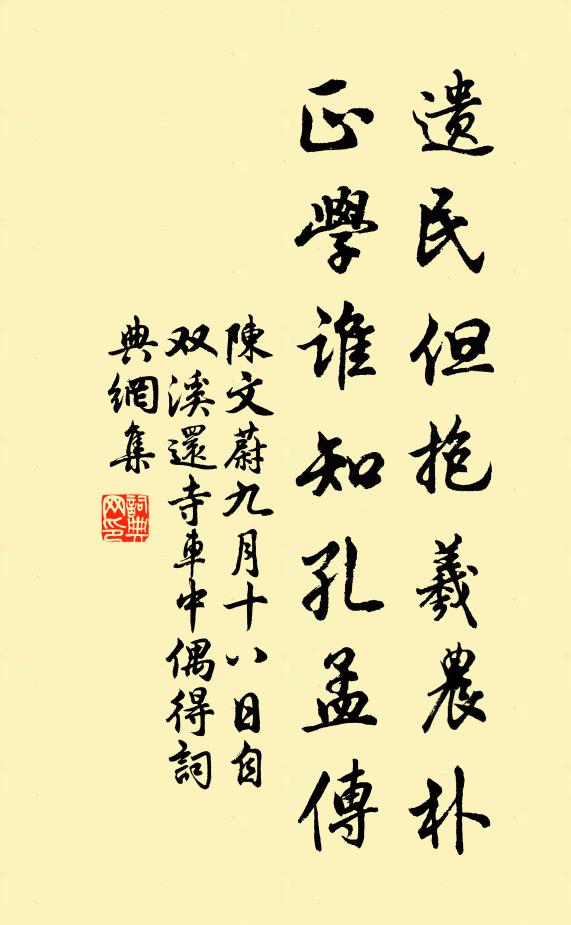 遺民但抱羲農朴
正學誰知孔孟傳
陳文蔚九月十八日自
双溪還寺車中偶得詞
典網集
詞典
网印